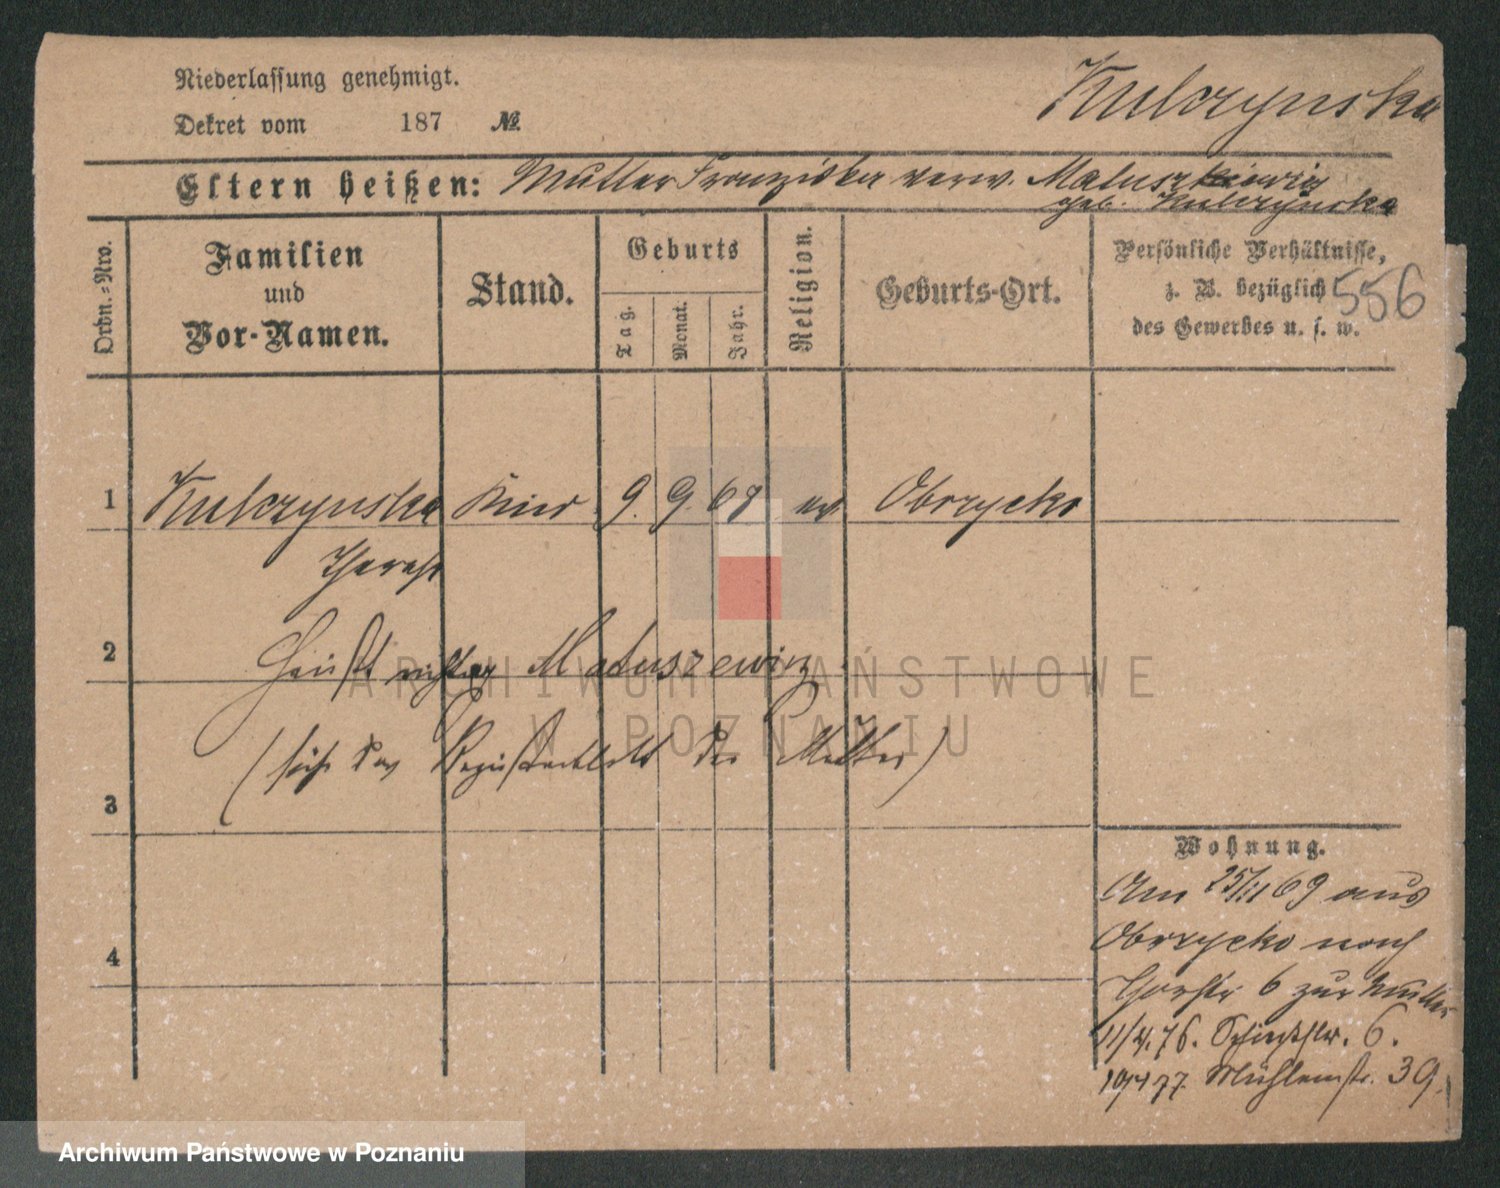 Niederlassung genehmigt.
Dekret vom 187 №
Kulczynska
Eltern heißen: Mutter Franziska verw. Matuszkiewicz
geb. Kulczynska
Ordn.-Nro.
Familien
und
Vor-Namen.
Stand.
Geburts
Tag.
Monat.
Jahr.
Religion.
Geburts-Ort.
Persönliche Verhältnisse,
z. B. bezüglich
des Gewerbes u. s. w.
556
1 Kulczynska Kind 9. 9. 68 Obrzycko
Therese
2 heißt richtig Matuszewicz
(siehe das der Mutter)
3
Wohnung.
Am 25/11 69 aus
Obrzycko nach
6 zur Mutter
4
76. 6.
77. Mühlenstr. 39.
ARCHIWUM PAŃSTWOWE
W POZNANIU
Archiwum Państwowe w Poznaniu